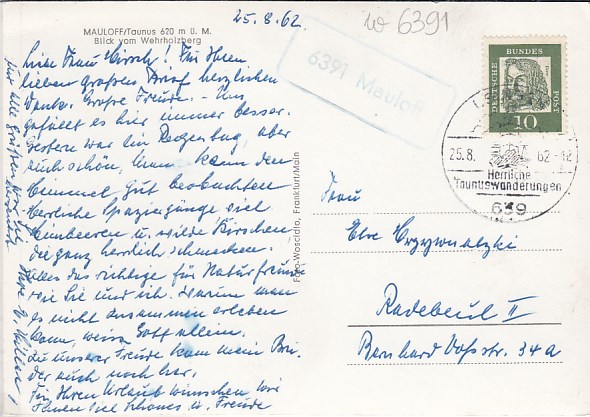 25.8.62.
w 6391
MAULOFF/Taunus 620 m ü. M.
Blick vom Wehrholzberg
Liebe Frau Hirsch! Für Ihren
lieben großen Brief herzlichen
Dank. Große Freude. Uns
gefällt es hier immer besser.
Gestern war ein Regentag, aber
auch schön, man kann den
Himmel gut beobachten
Herrliche Spaziergänge viel
Himbeeren u. wilde Kirschen
die ganz herrlich schmecken.
Alles das richtige für Naturfreunde
wie Sie und ich. Warum man
es nicht zusammen erleben
kann, weiss Gott allein.
Zu unserer Freude kam mein Bru-
der auch noch her.
Für Ihren Urlaub wünschen wir
Ihnen viel Schönes u. Freude
6391 Mauloff
DEUTSCHE BUNDESPOST
10
25.8. 62-12
Herrliche
Taunuswanderungen
639
Foto-Woscidlo, Frankfurt/Main
Frau
Radebeul II
Bernhard Voßstr. 34a